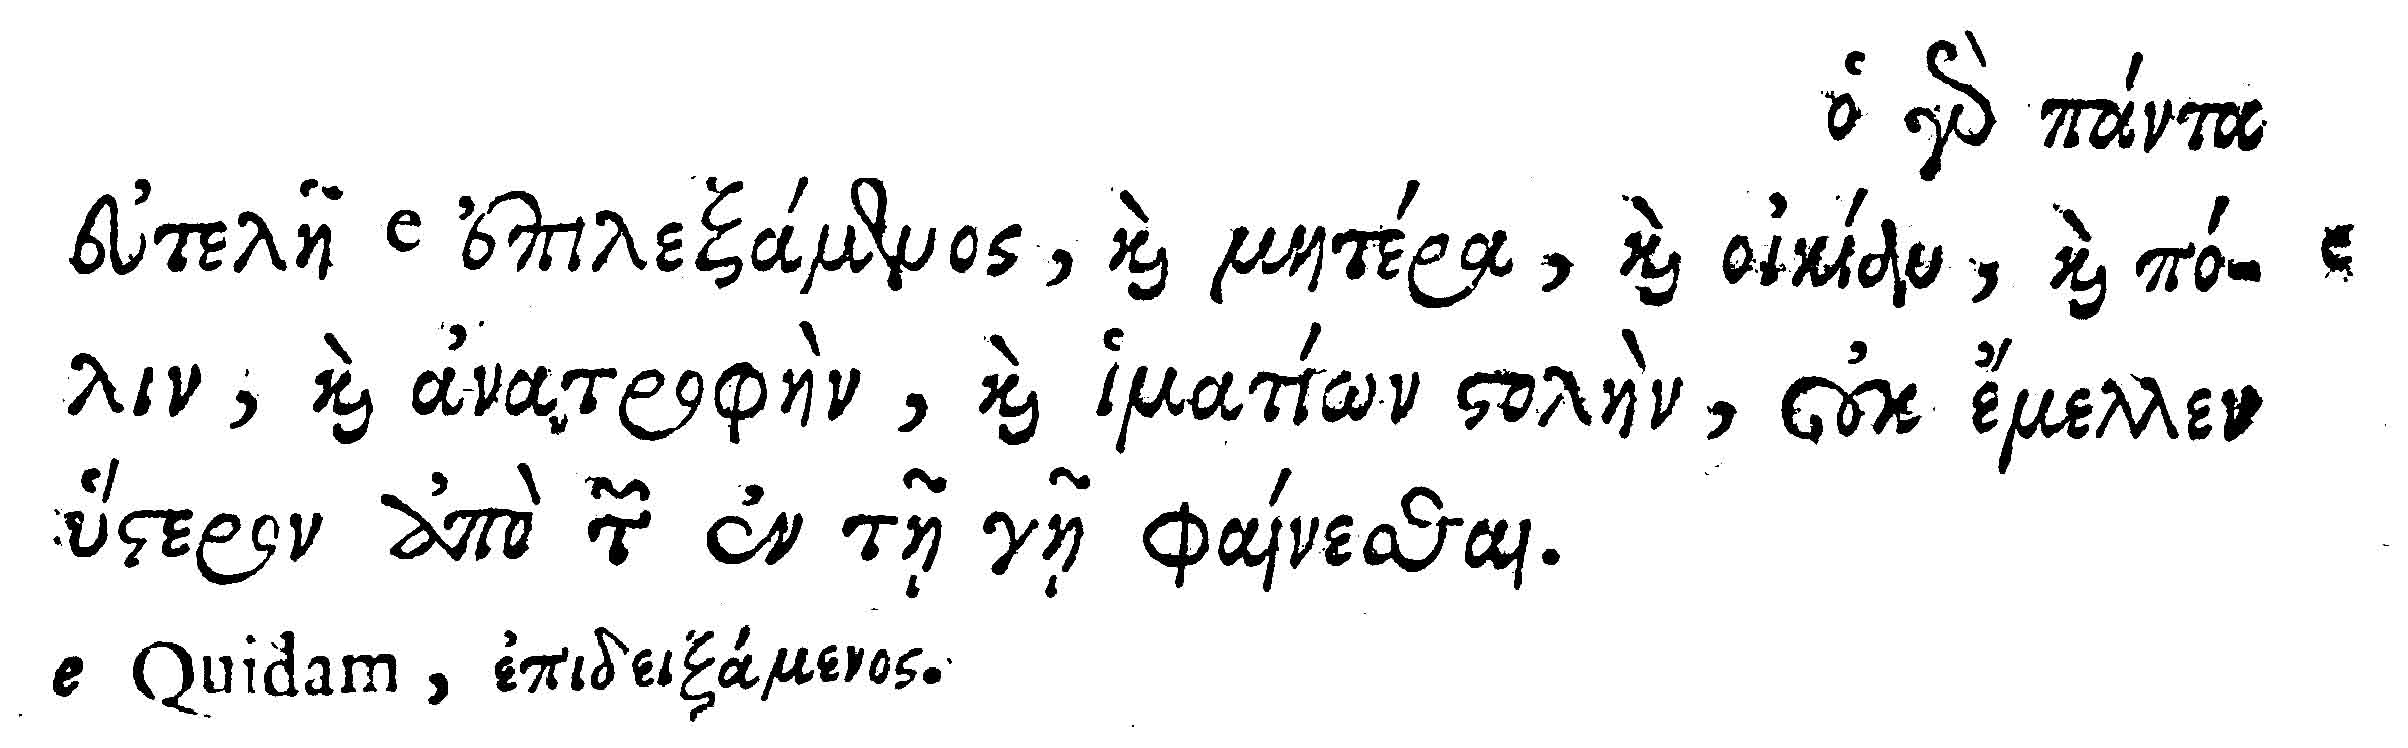 ὁ γὰρ πάντα
εὐτελῆ e ἐπιλεξάμενος, καὶ μητέρα, καὶ οἰκίαν, καὶ πό- e
λιν, καὶ ἀνατροφὴν, καὶ ἱματίων στολὴν, οὐκ ἔμελλεν
ὕστερον ἀπὸ τῶν ἐν τῇ γῇ φαίνεσθαι.
e Quidam, ἐπιδειξάμενος.